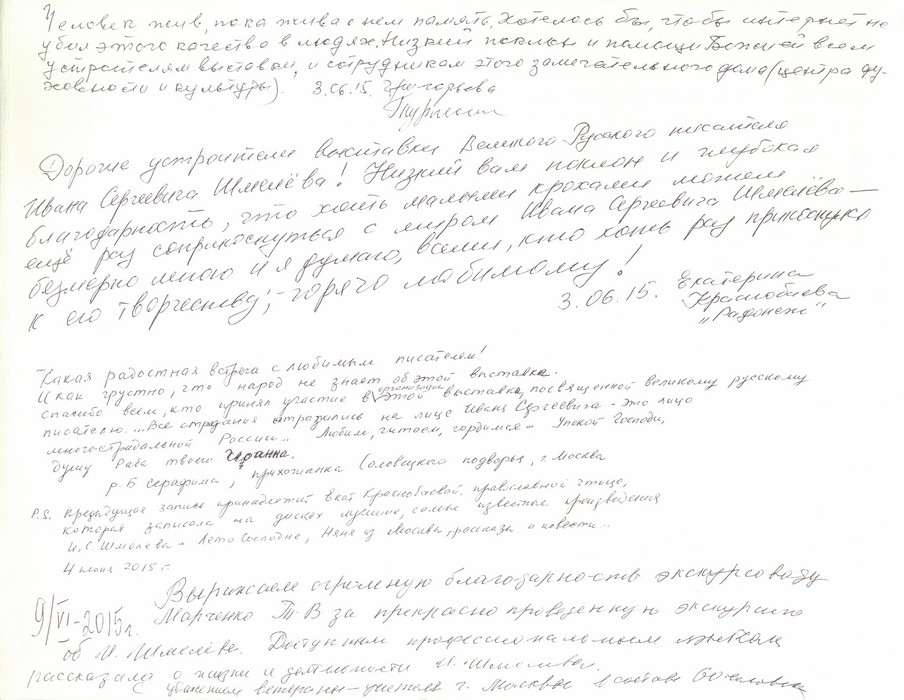 Человек жив, пока жива о нем память. Хотелось бы, чтобы интернет не
убил этого качества в людях. Низкий поклон и помощи Божией всем
устроителям выставки, и сотрудникам этого замечательного дома (центра ду-
ховности и культуры). 3.06.15. Григорьева
Дорогие устроители выставки Великого Русского писателя
Ивана Сергеевича Шмелёва! Низкий вам поклон и глубокая
благодарность, что хоть малыми крохами можем
ещё раз соприкоснуться с миром Ивана Сергеевича Шмелёва —
безмерно мною и я думаю, всеми, кто хоть раз прикоснулся
к его творчеству, - горячо любимому!
3.06.15. Екатерина
Краснобаева
„Радонеж"
"Какая радостная встреча с любимым писателем!
И как грустно, что народ не знает об этой выставке.
Спасибо всем, кто принял участие в организации этой выставки, посвященной великому русскому
писателю... Все страдания отразились на лице Ивана Сергеевича - это лицо
многострадальной России... Любим, читаем, гордимся... Упокой Господи,
душу раба твоего Иоанна.
р. Б Серафима, прихожанка Соловецкого подворья, г. Москва
P.S. Предыдущая запись принадлежит Екат Краснобаевой, православной чтице,
которая записала на дисках самые известные произведения
И.С. Шмелева - Лето Господне, Няня из Москвы, рассказы и повести...
4 июня 2015 г.
9/VI-2015г. Выражаем огромную благодарность экскурсоводу
Марченко Т В за прекрасно проведенную экскурсию
об И. Шмелёве. Доступным профессиональным языком
рассказала о жизни и деятельности И. Шмелева.
С уважением ветераны-учителя г. Москвы в составе 60 человек